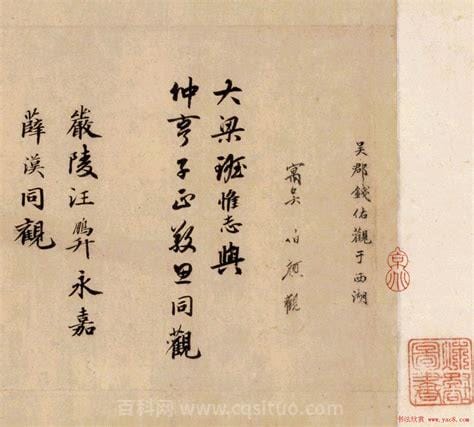 吳郡錢佑觀于西湖
寓吳伯顏觀
大梁班惟志與
仲亨子正同觀
嚴陵汪鵬升永嘉
薛漢同觀
百科网·www.cqsituo.com
书法欣赏 www.yac8.com